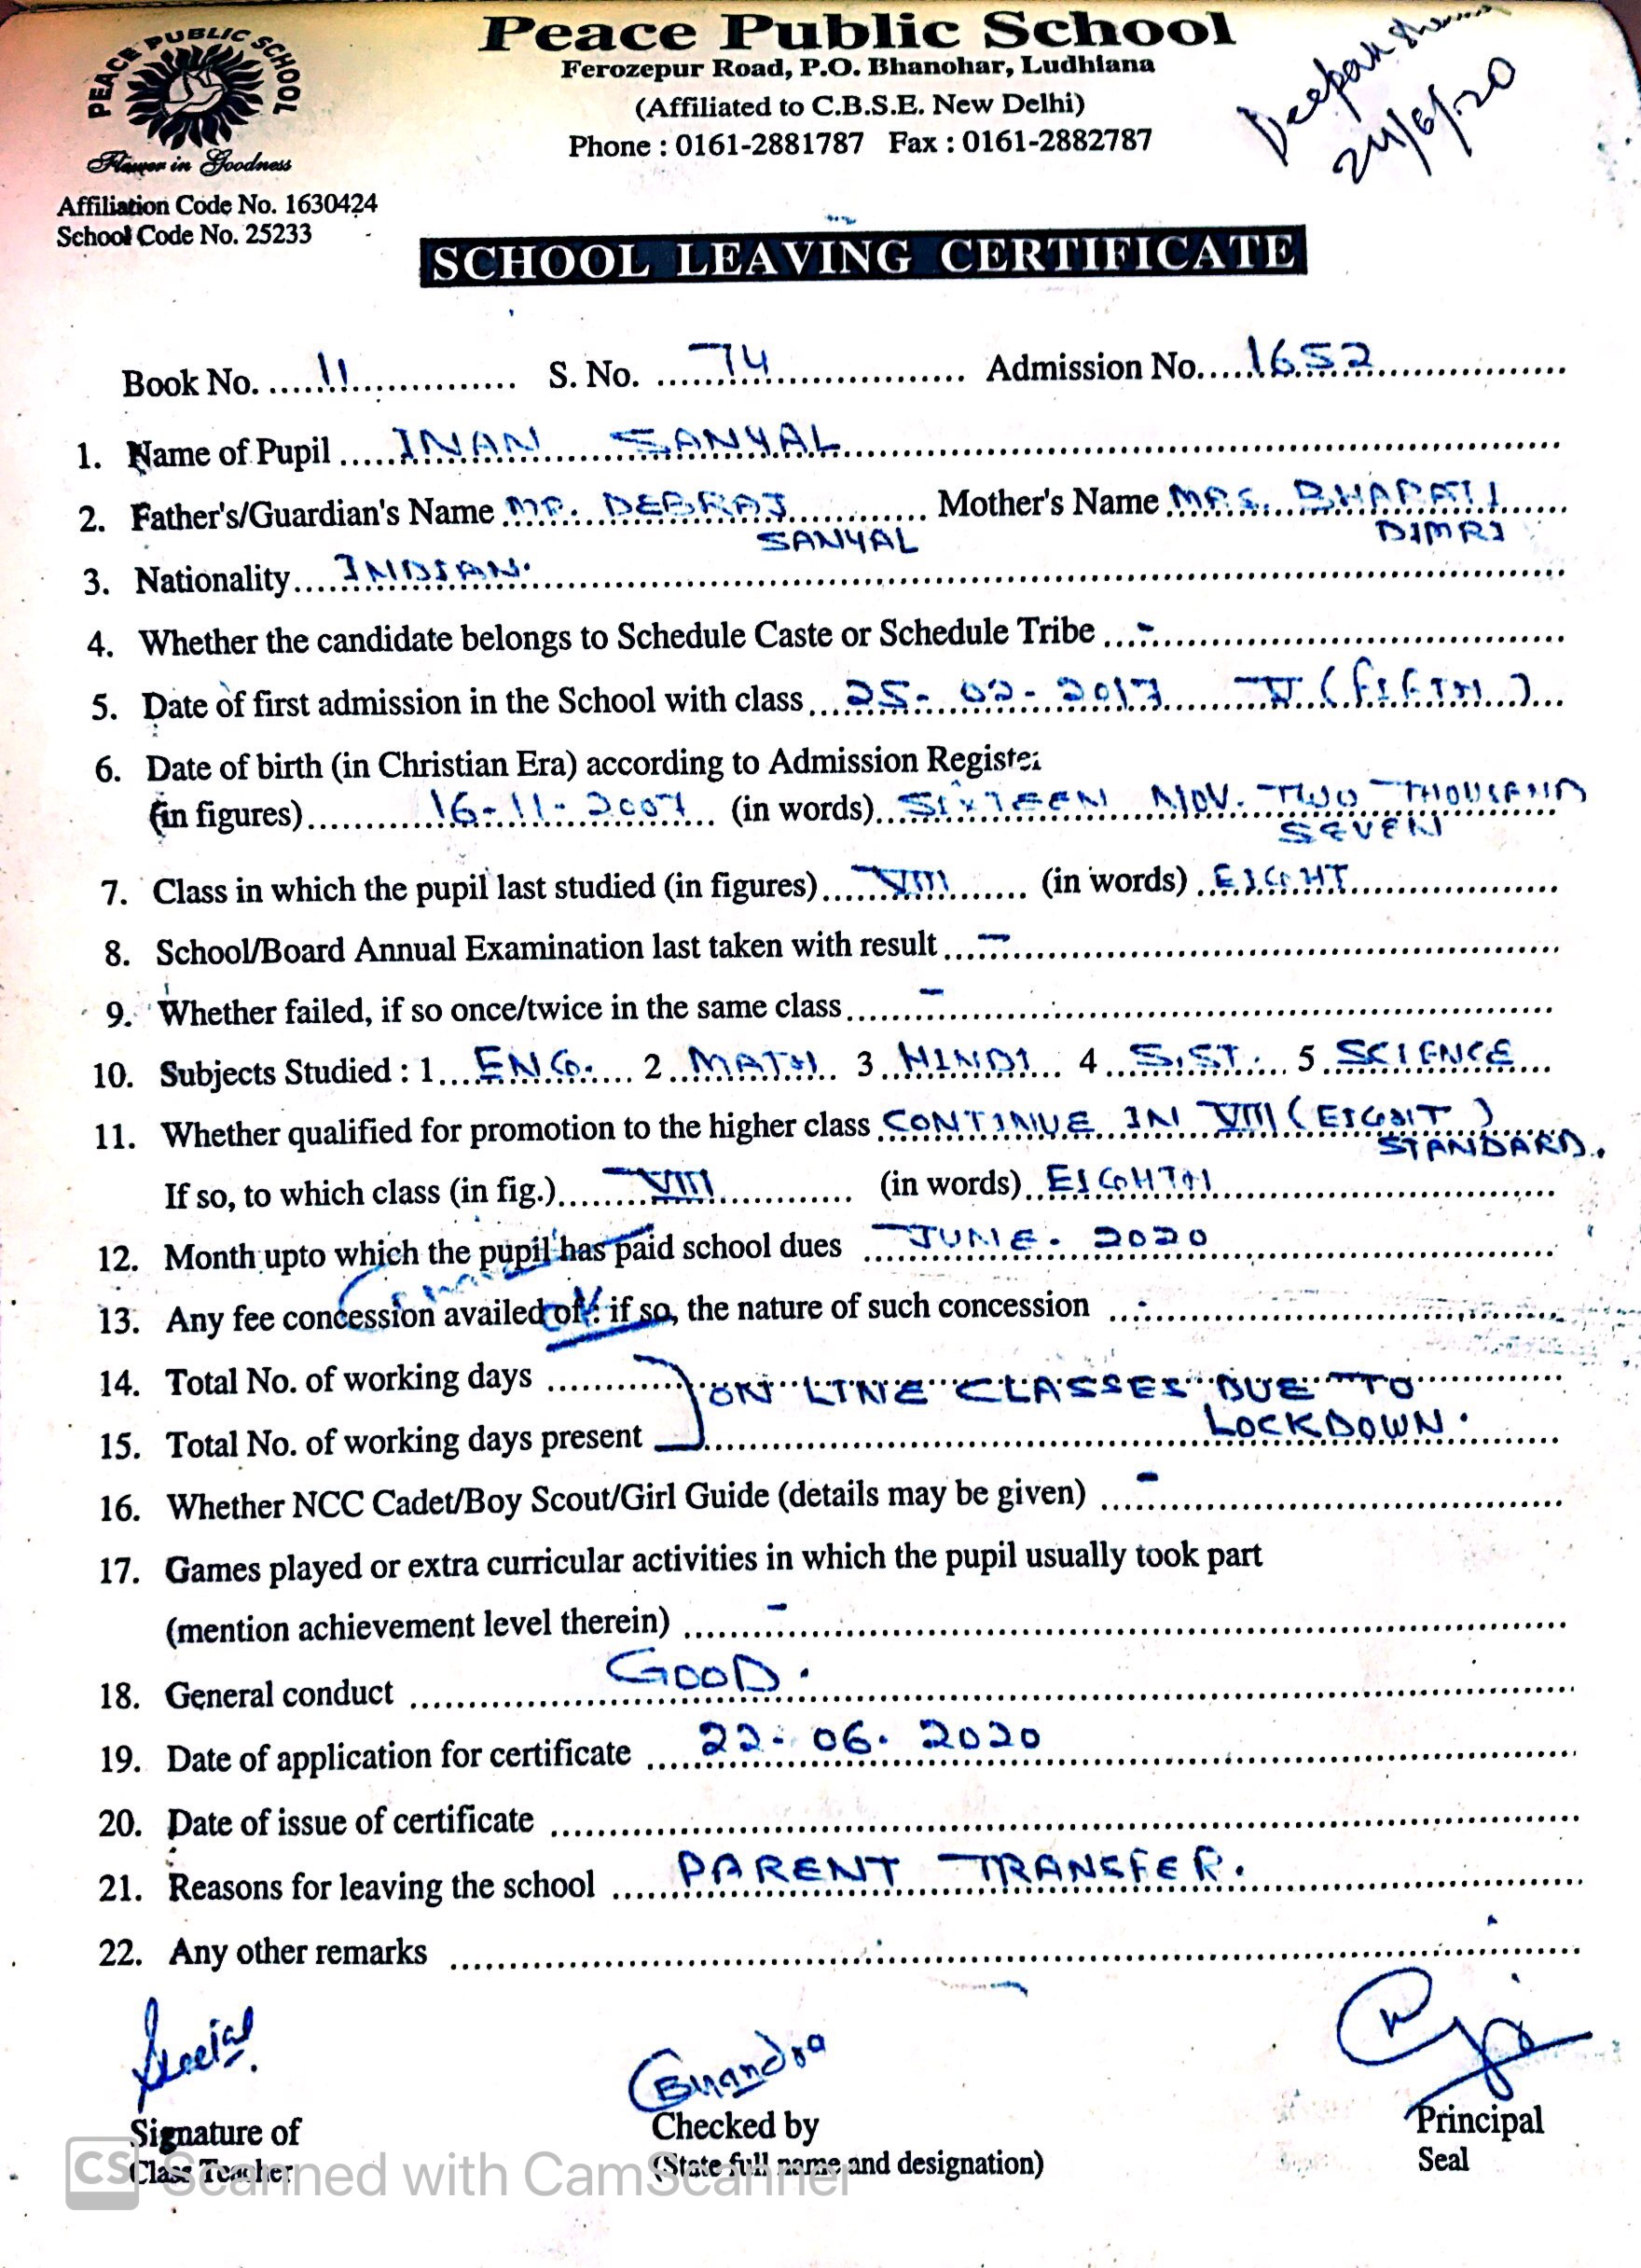 PEACE PUBLIC SCHOOL
Flower in Goodness
Peace Public School
Ferozepur Road, P.O. Bhanohar, Ludhiana
(Affiliated to C.B.S.E. New Delhi)
Phone : 0161-2881787 Fax : 0161-2882787
24/6/20
Affiliation Code No. 1630424
School Code No. 25233
SCHOOL LEAVING CERTIFICATE
Book No. 11 S. No. 74 Admission No. 1652
1. Name of Pupil INAN SANYAL
2. Father's/Guardian's Name MR. DEBRAJ SANYAL Mother's Name MRS. BHARATI DIMRI
3. Nationality INDIAN.
4. Whether the candidate belongs to Schedule Caste or Schedule Tribe -
5. Date of first admission in the School with class 25-02-2017 V (FIFTH)
6. Date of birth (in Christian Era) according to Admission Register
(in figures) 16-11-2007 (in words) SIXTEEN NOV. TWO THOUSAND SEVEN
7. Class in which the pupil last studied (in figures) VIII (in words) EIGHT
8. School/Board Annual Examination last taken with result -
9. Whether failed, if so once/twice in the same class -
10. Subjects Studied : 1 ENG. 2 MATH 3 HINDI 4 S.ST. 5 SCIENCE
11. Whether qualified for promotion to the higher class CONTINUE IN VIII (EIGHT) STANDARD.
If so, to which class (in fig.) VIII (in words) EIGHTH
12. Month upto which the pupil has paid school dues JUNE. 2020
13. Any fee concession availed of : if so, the nature of such concession -
14. Total No. of working days ON LINE CLASSES DUE TO
15. Total No. of working days present LOCKDOWN.
16. Whether NCC Cadet/Boy Scout/Girl Guide (details may be given) -
17. Games played or extra curricular activities in which the pupil usually took part
(mention achievement level therein) -
18. General conduct GOOD.
19. Date of application for certificate 22-06.2020
20. Date of issue of certificate
21. Reasons for leaving the school PARENT TRANSFER.
22. Any other remarks
Signature of Checked by Principal
Class Teacher (State full name and designation) Seal
CS Scanned with CamScanner